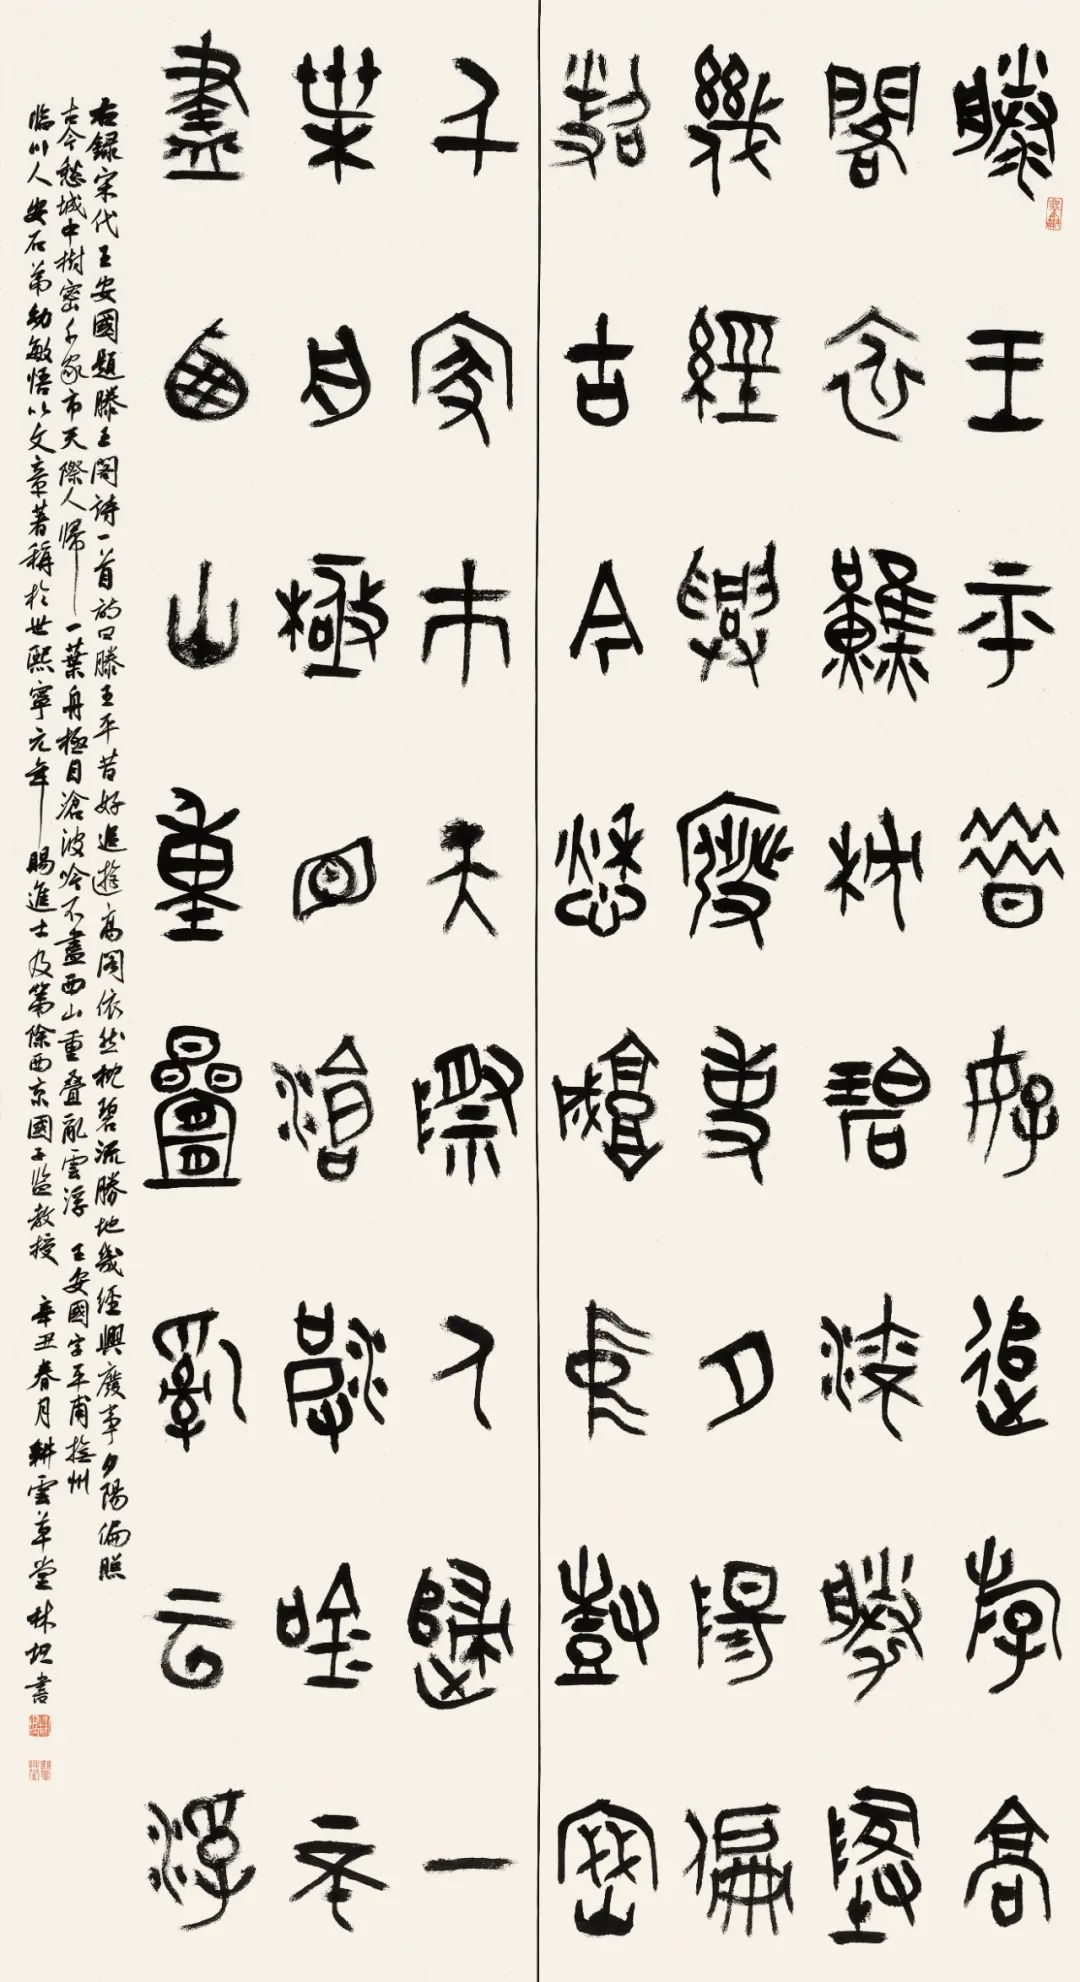 滕王平昔好追游高
閣依然枕碧流勝地
幾經興廢事夕陽偏
照古今愁城中樹密
千家市天際人歸一
葉舟極目滄波吟不
盡西山重疊亂云浮
右録宋代王安國題滕王閣詩一首詩曰滕王平昔好追遊高閣依然枕碧流勝地幾經興廢事夕陽偏照
古今愁城中樹密千家市天際人歸一葉舟極目滄波吟不盡西山重叠亂雲浮 王安國字平甫撫州
临川人安石弟幼敏悟以文章著稱於世熙寧元年賜進士及第除西京國子监教授 辛丑春月耕雲草堂林坦書